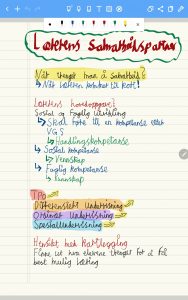 Når trenger man å samarbeide?
↳ Når læreren kommer til kort!
Lærerens hovedoppgave?
Sosial og Faglig utvikling
↳ Skal føre til en kompetanse eller
VGS
↳ Handlingskompetanse
↳ Sosial kompetanse
↳ Vennskap
↳ Faglig kompetanse
↳ kunnskap
TPO
Differensiert Undervisning
Ordinær Undervisning
Spesialundervisning
Hensikt med Kartlegging
Finne ut hva elevene trenger for å få
best mulig læring